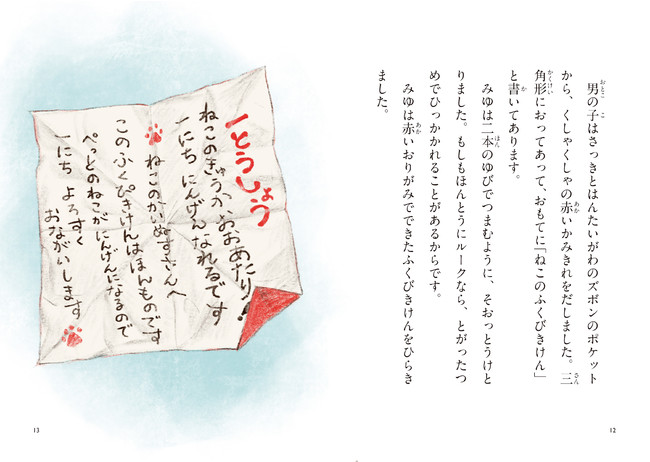 男の子はさっきとはんたいがわのズボンのポケット
から、くしゃくしゃの赤いかみきれをだしました。三
角形におってあって、おもてに「ねこのふくびきけん」
と書いてあります。
みゆは二本のゆびでつまむように、そおっとうけと
りました。もしもほんとうにルークなら、とがったつ
めでひっかかれることがあるからです。
みゆは赤いおりがみでできたふくびきけんをひらき
ました。
12
一とうしょう
ねこのきゅうか おおあたり!
一にち にんげんなれるです
ねこのかいぬすさんへ
このふくぴきけんはほんものです
ぺっとのねこがにんげんになるので
一にち よろすく
おながいします
13